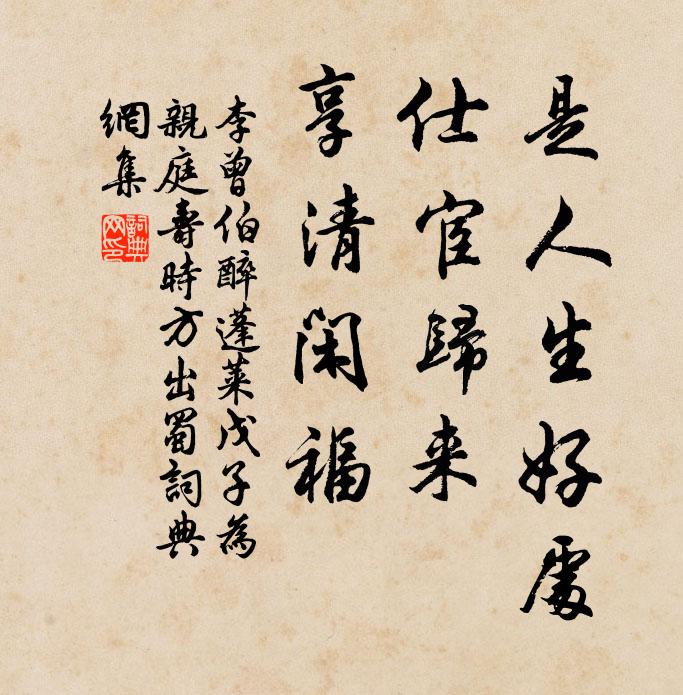 是人生好處
仕宦歸来
享清閑福
李曾伯醉蓬萊戊子為
親庭壽時方出蜀詞典
網集
詞典
网印